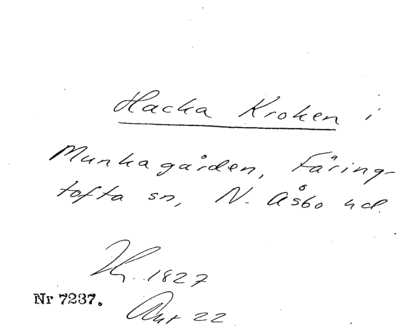 Hacka Kroken i
Munkagården, Färing-
tofta sn, N. Åsbo hd.
1827
Nr 7237.
22